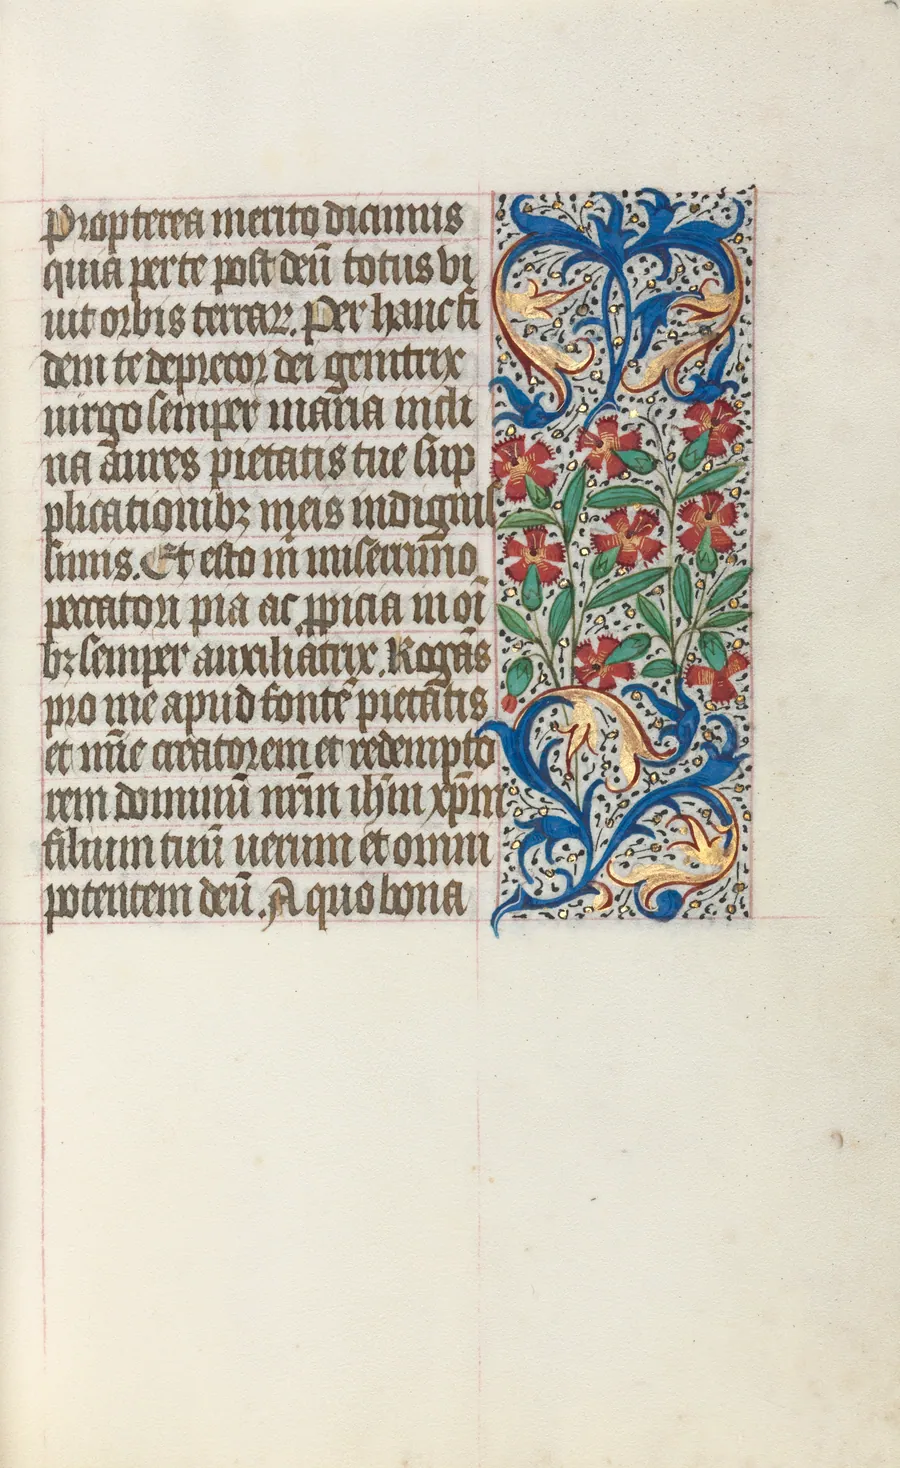 Propterea merito dicimus
quia per te post deū totus vi
uit orbis terraꝝ. Per hanc fi
dem te deprecor dei genitrix
uirgo semper maria incli
na aures pietatis tue sup
plicationibꝫ meis indignis
simis. Et esto m̄ miserrimo
peccatori pia ac ꝓpicia in oī
bꝫ semper auxiliatrix. Rogās
pro me apud fontē pietatis
et mīe creatorem et redempto
rem dominū nrm̄ ihm̄ xpm̄
filium tuū uerum et omni
potentem deū. A quo bona